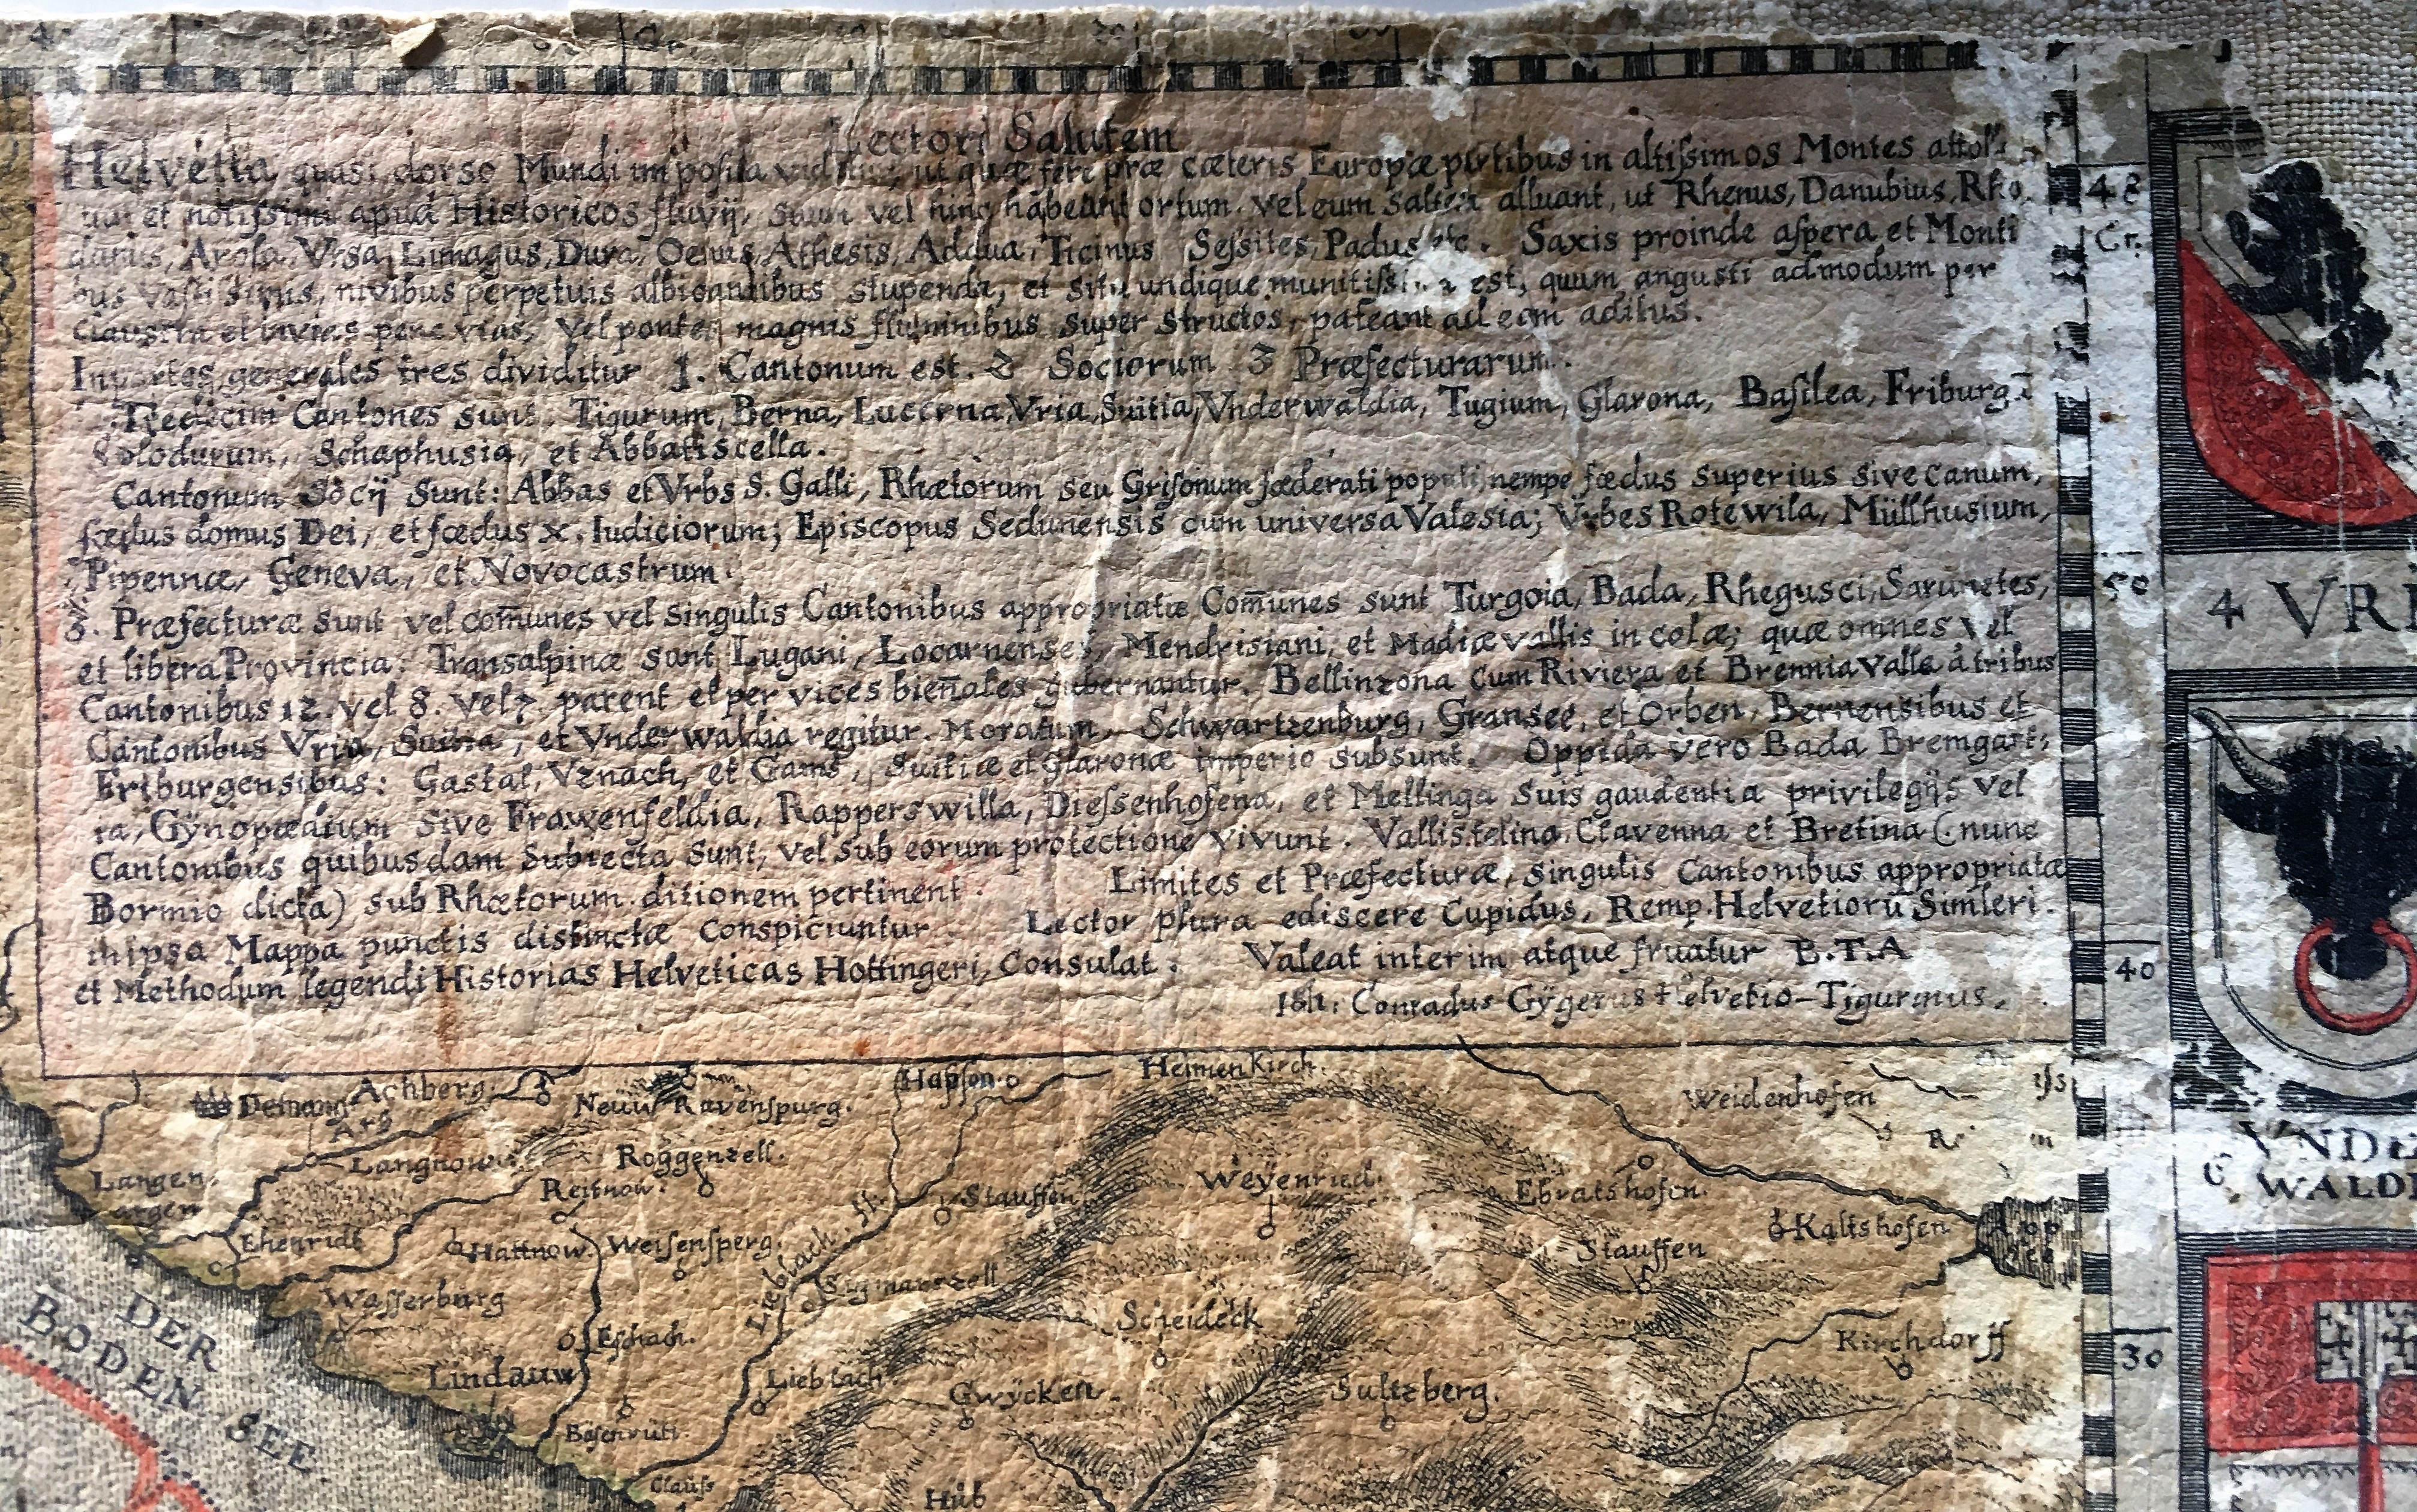 Lectori Salutem
Helvetia quasi dorso Mundi imposita videtur, ut quæ fere præ cæteris Europæ partibus in altiſsimos Montes attol
et notiſsimi apud Historicos fluvÿ, suum vel hinc habeant ortum. vel eum saltem alluant, ut Rhenus, Danubius, Rho
danus, Arola, Vrsa, Limagus, Dura, Oenus, Athesis, Addua, Ticinus Seſsites, Padus etc. Saxis proinde aſpera et Monti
bus vastiſsimis, nivibus perpetuis albicantibus stupenda, et situ undique est, quum angusti admodum per
claustra et invias pene vias, vel pontes magnis fluminibus super structos, pateant ad eam aditus.
In partes generales tres dividitur 1. Cantonum est. 2 Sociorum 3 Præfecturarum.
Tredecim Cantones sunt. Tigurum, Berna, Lucerna, Vria, Suitia, Vnderwaldia, Tugium, Glarona, Baſilea, Friburg.
Solodurum, Schaphusia, et Abbatiscella.
Cantonum Socÿ Sunt: Abbas et Vrbs S. Galli, Rhætorum seu Griſonum fœderati populi, nempe fœdus superius sive canum,
fœdus domus Dei, et fœdus x. Iudiciorum; Episcopus Sedunensis cum universa Valesia; Vrbes Rotewila, Müllhusium,
Pipennæ, Geneva, et Novocastrum.
3. Præfecturæ sunt vel com̄unes vel singulis Cantonibus appropriatæ Com̄unes sunt Turgoia, Bada, Rhegusci, Sarunetes,
et libera Provincia: Transalpinæ sunt Lugani, Locarnenses, Mendrisiani, et Madiæ vallis incolæ; quæ omnes vel
Cantonibus 12. vel 8. vel 7. parent et per vices bien̄ales gubernantur. Bellinzona cum Riviera et Brennia Valle à tribus
Cantonibus Vria, Suitia, et Vnderwaldia regitur. Moratum, Schwartzenburg, Gransee, et Orben, Bernensibus et
Friburgensibus: Gastal, Vznach, et Gams, Suitiæ et Glaronæ imperio subsunt. Oppida vero Bada Bremgart:
ia, Gÿnopædium sive Frawenfeldia, Rapperswilla, Dieſsenhofena, et Mellinga suis gaudent ia privilegÿs vel
Cantonibus quibusdam Subiecta Sunt, vel sub eorum protectione vivunt. Vallistelina. Clavenna et Bretina (: nunc
Bormio dicta) sub Rhætorum ditionem pertinent. Limites et Præfecturæ, singulis Cantonibus appropriatæ
in ipsa Mappa punctis distinctæ conspiciuntur Lector plura ediscere Cupidus, Remp. Helvetiorū Simleri.
et Methodum legendi Historias Helveticas Hottingeri, Consulat. Valeat interim atque fruatur B.T.A
Ioh: Conradus Gÿgerus Helvetio-Tigurinus.
48
Cr.
50
40
30
4 VRI
6 VNDE
WALD
Achberg.
Arg
Neüw Ravenſpurg.
Hapſen
Heimen Kirch.
Weidenhofen
Langnow
Roggenzell.
Langen
argen
Reitnow.
Stauffen
Weÿenried.
Ebratshofen.
Ehenridt
Hattnow
Weiſenſperg
Kaltshofen
Stauffen
Waſſerburg
Lieblach fl:
Sigmarszell
Scheideck
Eſchach.
Kirchdorff
Lindauw
Lieblach
Gwÿcken.
Sultzberg.
DER
BODEN SEE.
Clauſs
Hub